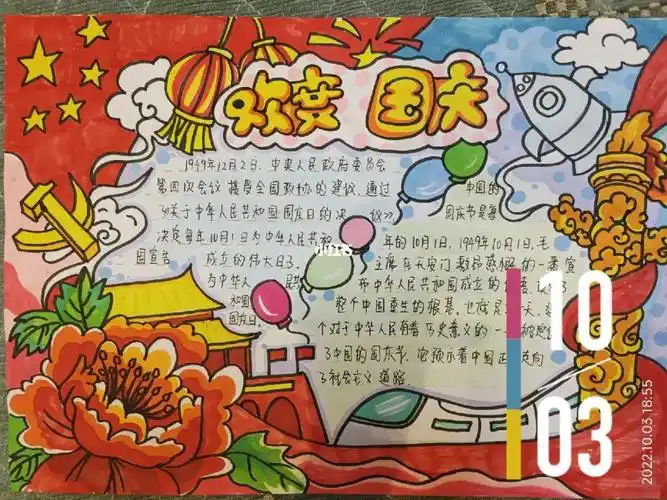 欢度 国庆
1949年12月2日，中央人民政府委员会
第四次会议 接受全国政协的建议，通过
《关于中华人民共和国国庆日的决 议》，
决定每年10月1日为中华人民共和
国宣告 成立的伟大日子
为中华人 民共
和国
国庆日。
中国的
国庆节是每
年的10月1日，1949年10月1日，毛
主席在天安门 的一番宣
布中华人民共和国成立的
整个中国重生的根基，也就是 天，
个对于中华人民有着历史意义的一
了中国的国庆节，它预示着中国正 走向
了社会主义 道路
10
03
2022.10.03 18:55